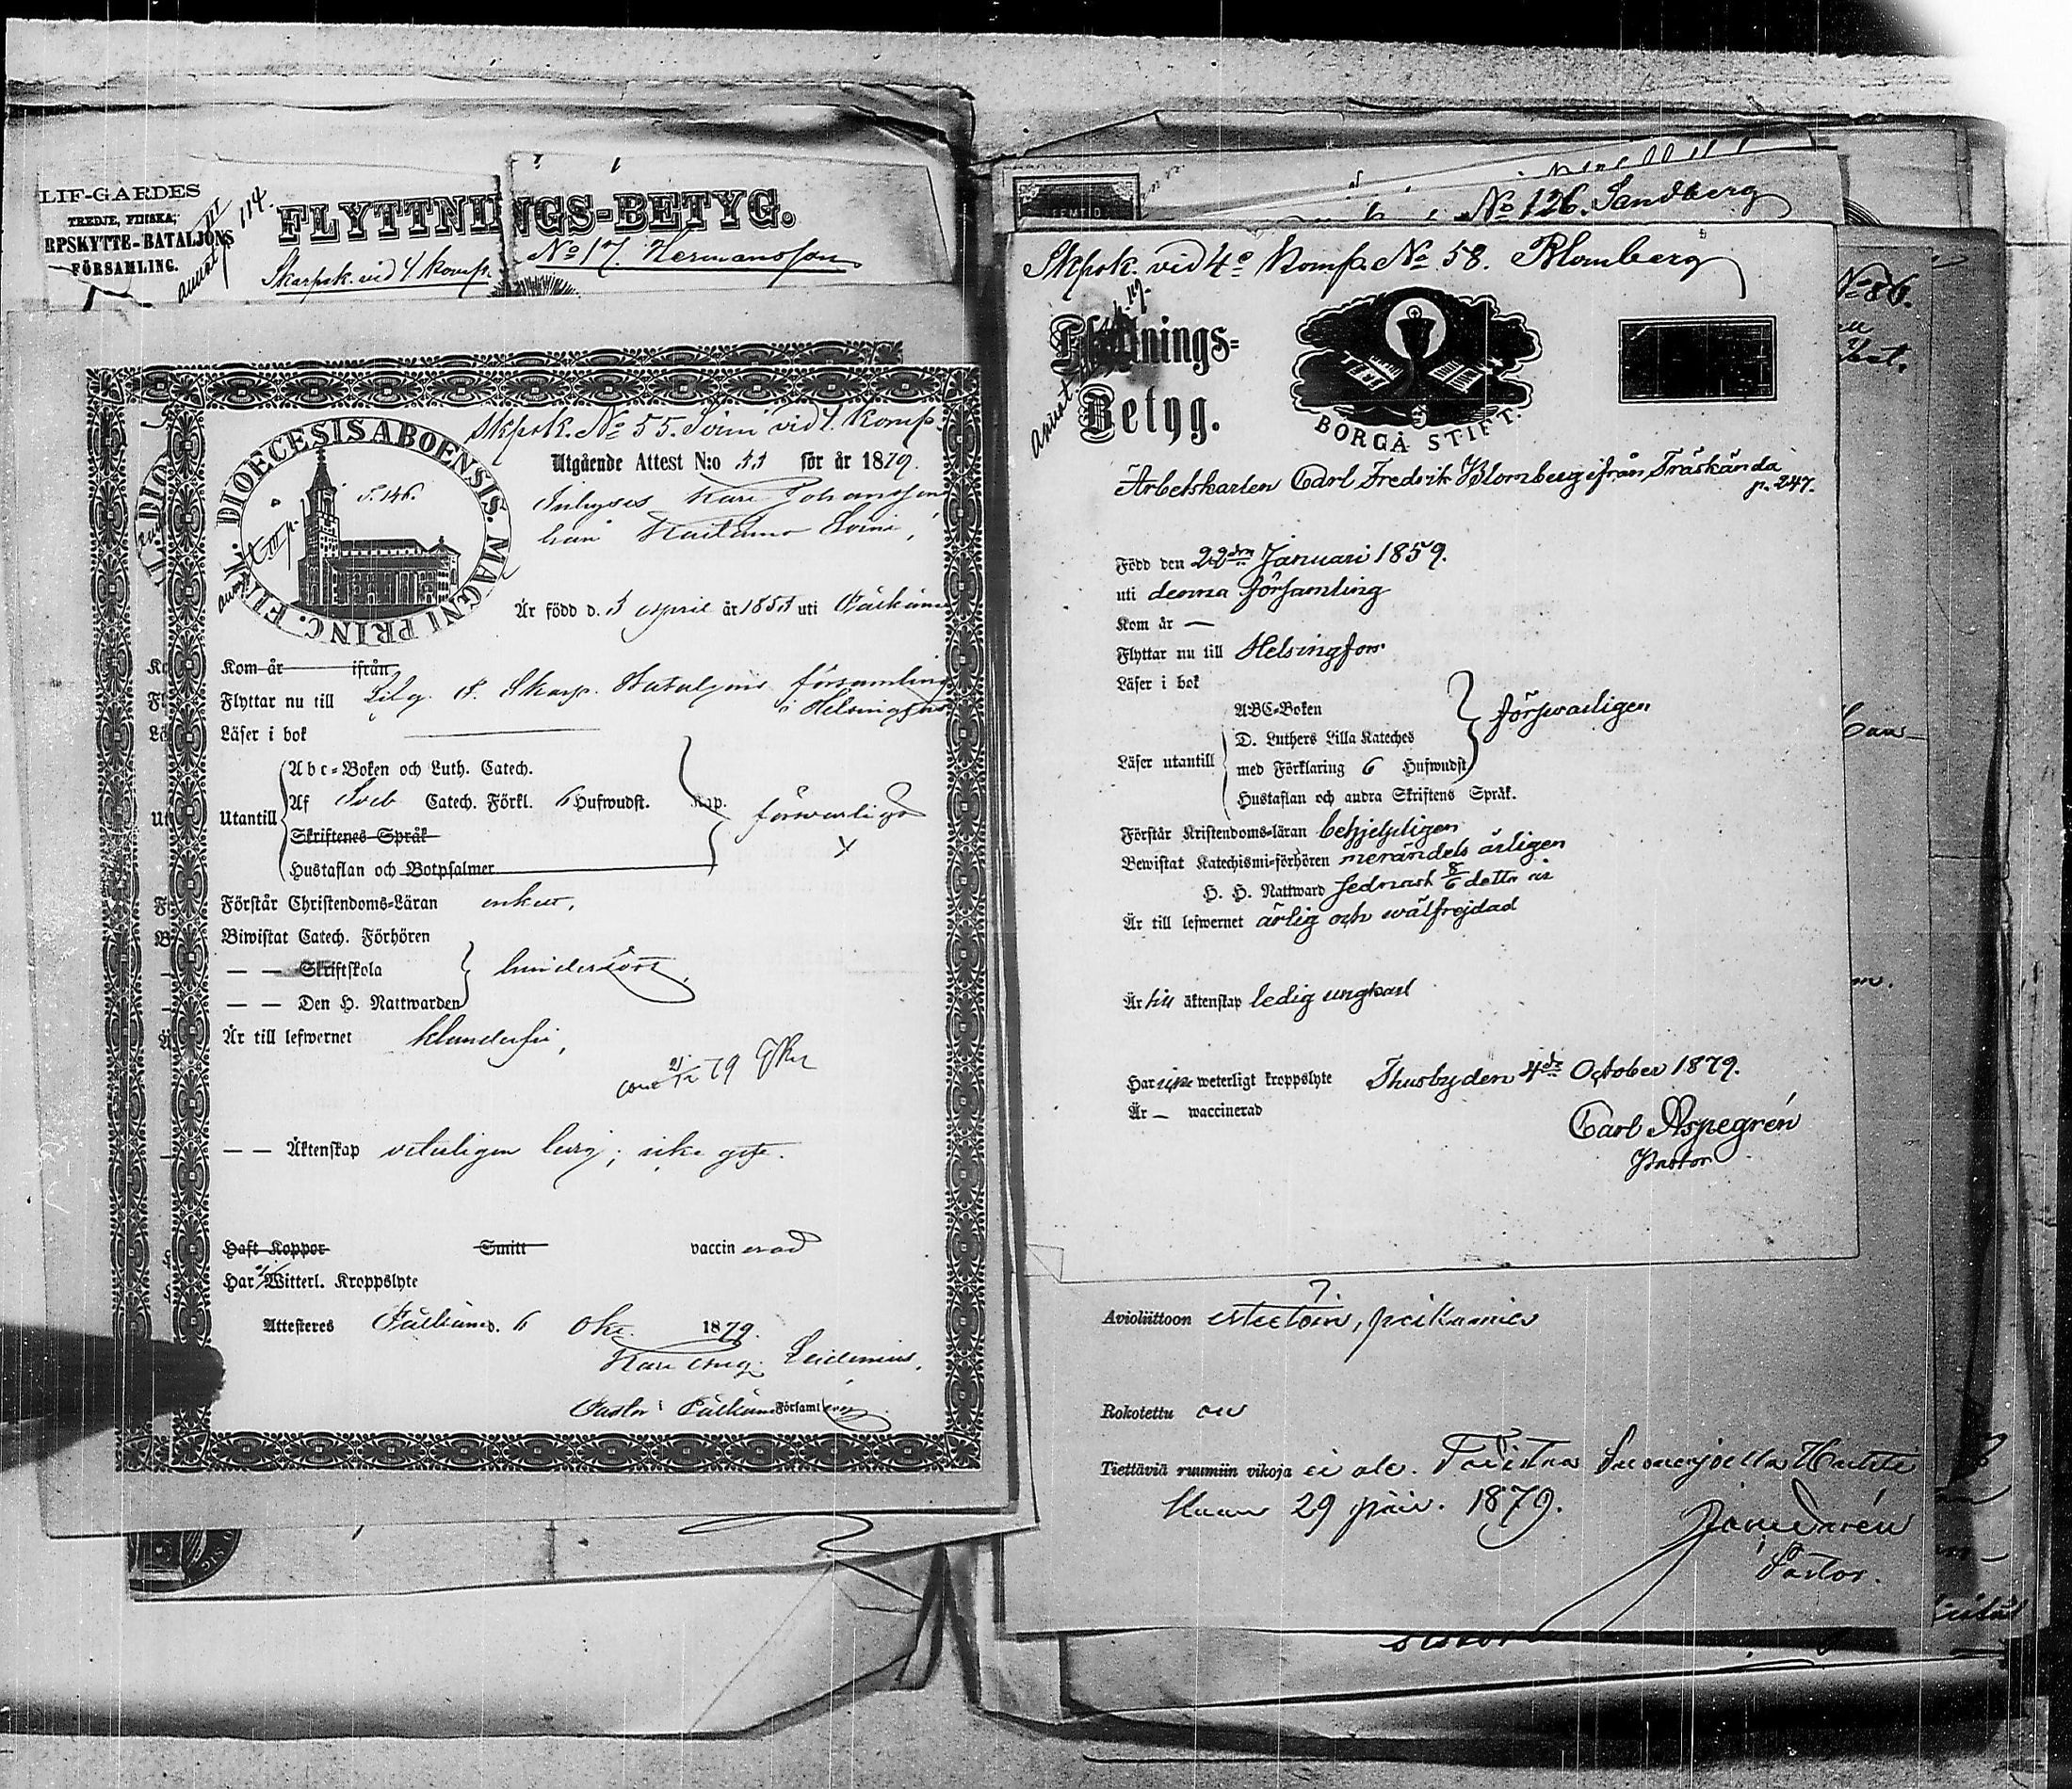 LIF-GARDES
TREDJE, FINSKA,
RPSKYTTE-BATALJONS
FÖRSAMLING.
114.
FLYTTNINGS-BETYG.
Skarpsk. vid 4 Komp.
No 17. Hermansson
Skpsk. No 55. vid 4. Komp.
DIOECESIS ABOENSIS. MAGNI PRINC. FINL.
S. 146.
Utgående Attest N:o 53 för år 1879.
Inhyses Karl Johansson
Är född d. 3 April år 1858 uti Pälkäne
Kom år ifrån
Flyttar nu till Lifg. F. Skarp. Bataljons församling
i Helsingfors
Läser i bok
Utantill
Abc-Boken och Luth. Catech.
Af Sveb Catech. Förkl. 6 Hufwudst. Kap.
försvarligt
Skriftenes Språk
Hustaflan och Botpsalmer
Förstår Christendoms-Läran enkelt,
Biwistat Catech. Förhören
— — Skriftskola
— — Den H. Nattwarden
Är till lefwernet klanderfri,
79
— — Äktenskap veterligen ledig; icke gift.
Haft Koppor Smitt vaccinerad
Har Witterl. Kroppslyte
Attesteres Pälkäne d. 6 Okt. 1879.
Karl Aug. Leidenius,
Pastor i Pälkäne Församling
No 126. Sandberg
Skpsk. vid 4e Komp. No 58. Blomberg
Flyttnings-
Betyg.
BORGÅ STIFT.
Arbetskarlen Carl Fredrik Blomberg ifrån Träskända
p. 247.
Född den 22dra Januari 1859.
uti denna församling
Kom år —
Flyttar nu till Helsingfors
Läser i bok
Läser utantill
ABC-Boken
D. Luthers Lilla Kateches
med Förklaring 6 Hufwudst.
försvarligen
Hustaflan och andra Skriftens Språk.
Förstår Kristendoms-läran behjelpligen
Bewistat Katechismi-förhören merändels årligen
H. H. Nattward sednast 8/6 detta år
Är till lefwernet ärlig och wälfrejdad
Är till äktenskap ledig ungkarl
Har icke weterligt kroppslyte Thusby den 4de October 1879.
Är — waccinerad
Carl Aspegrén
Pastor
No 86.
Avioliittoon esteetöin, poikamies
Rokotettu on
Tiettäviä ruumiin vikoja ei ole.
Kuun 29 päiv. 1879.
Pastor.